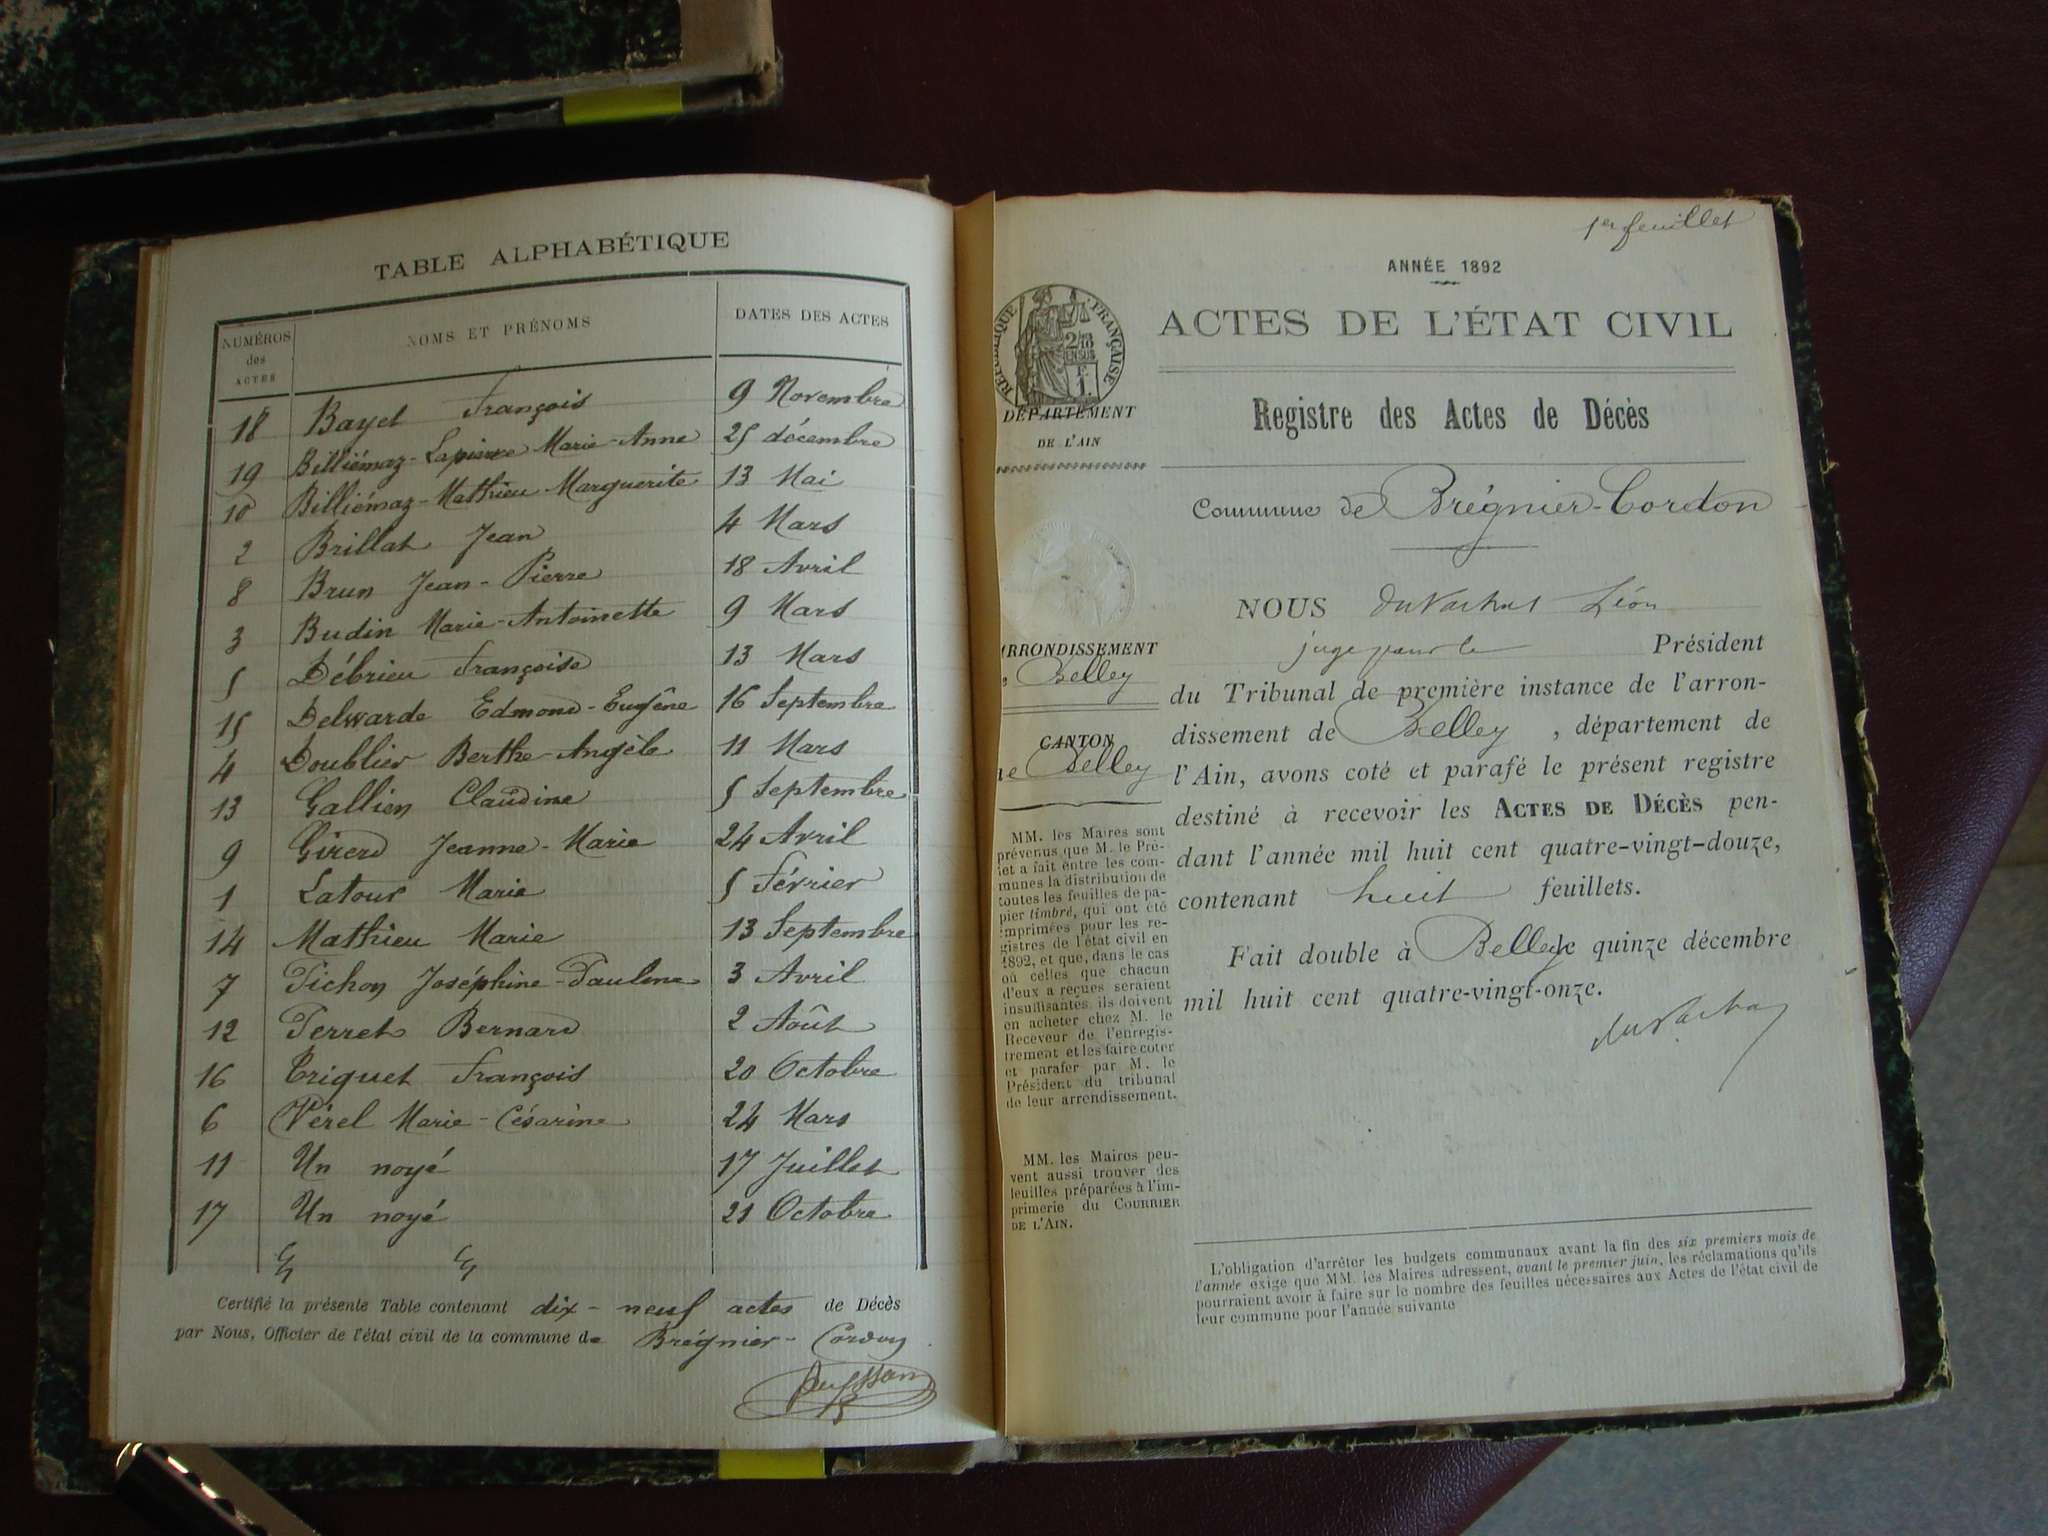 TABLE ALPHABÉTIQUE
NUMÉROS des ACTES NOMS ET PRÉNOMS DATES DES ACTES
18 Bayet François 9 Novembre
19 Billiémaz-Lapierre Marie-Anne 25 décembre
10 Billiémaz-Mathieu Marguerite 13 Mai
2 Brillat Jean 4 Mars
8 Brun Jean-Pierre 18 Avril
3 Budin Marie-Antoinette 9 Mars
5 Débrieu Françoise 13 Mars
15 Delwarde Edmond-Eugène 16 Septembre
4 Doublier Berthe-Angèle 11 Mars
13 Gallien Claudine 5 Septembre
9 Girerd Jeanne-Marie 24 Avril
1 Latour Marie 5 Février
14 Mathieu Marie 13 Septembre
7 Pichon Joséphine-Pauline 3 Avril
12 Perret Bernard 2 Août
16 Triquet François 20 Octobre
6 Vérel Marie-Césarine 24 Mars
11 Un noyé 17 Juillet
17 Un noyé 21 Octobre
Certifié la présente Table contenant dix-neuf actes de Décès
par Nous, Officier de l'état civil de la commune de Brégnier-Cordon
1er feuillet
ANNÉE 1892
ACTES DE L'ÉTAT CIVIL
Registre des Actes de Décès
Commune de Brégnier-Cordon
RÉPUBLIQUE FRANÇAISE
2/10 EN SUS
F. 1.
DÉPARTEMENT
DE L'AIN
RRONDISSEMENT
Belley
CANTON
Belley
MM. les Maires sont
prévenus que M. le Pré-
fet a fait entre les com-
munes la distribution de
toutes les feuilles de pa-
pier timbré, qui ont été
imprimées pour les re-
gistres de l'état civil en
1892, et que, dans le cas
où celles que chacun
d'eux a reçues seraient
insuffisantes, ils doivent
en acheter chez M. le
Receveur de l'enregis-
trement et les faire coter
et parafer par M. le
Président du tribunal
de leur arrondissement.
MM. les Maires peu-
vent aussi trouver des
feuilles préparées à l'im-
primerie du COURRIER
DE L'AIN.
NOUS Léon
juge pour le Président
du Tribunal de première instance de l'arron-
dissement de Belley, département de
l'Ain, avons coté et parafé le présent registre
destiné à recevoir les ACTES DE DÉCÈS pen-
dant l'année mil huit cent quatre-vingt-douze,
contenant huit feuillets.
Fait double à Belley le quinze décembre
mil huit cent quatre-vingt-onze.
L'obligation d'arrêter les budgets communaux avant la fin des six premiers mois de
l'année exige que MM. les Maires adressent, avant le premier juin, les réclamations qu'ils
pourraient avoir à faire sur le nombre des feuilles nécessaires aux Actes de l'état civil de
leur commune pour l'année suivante